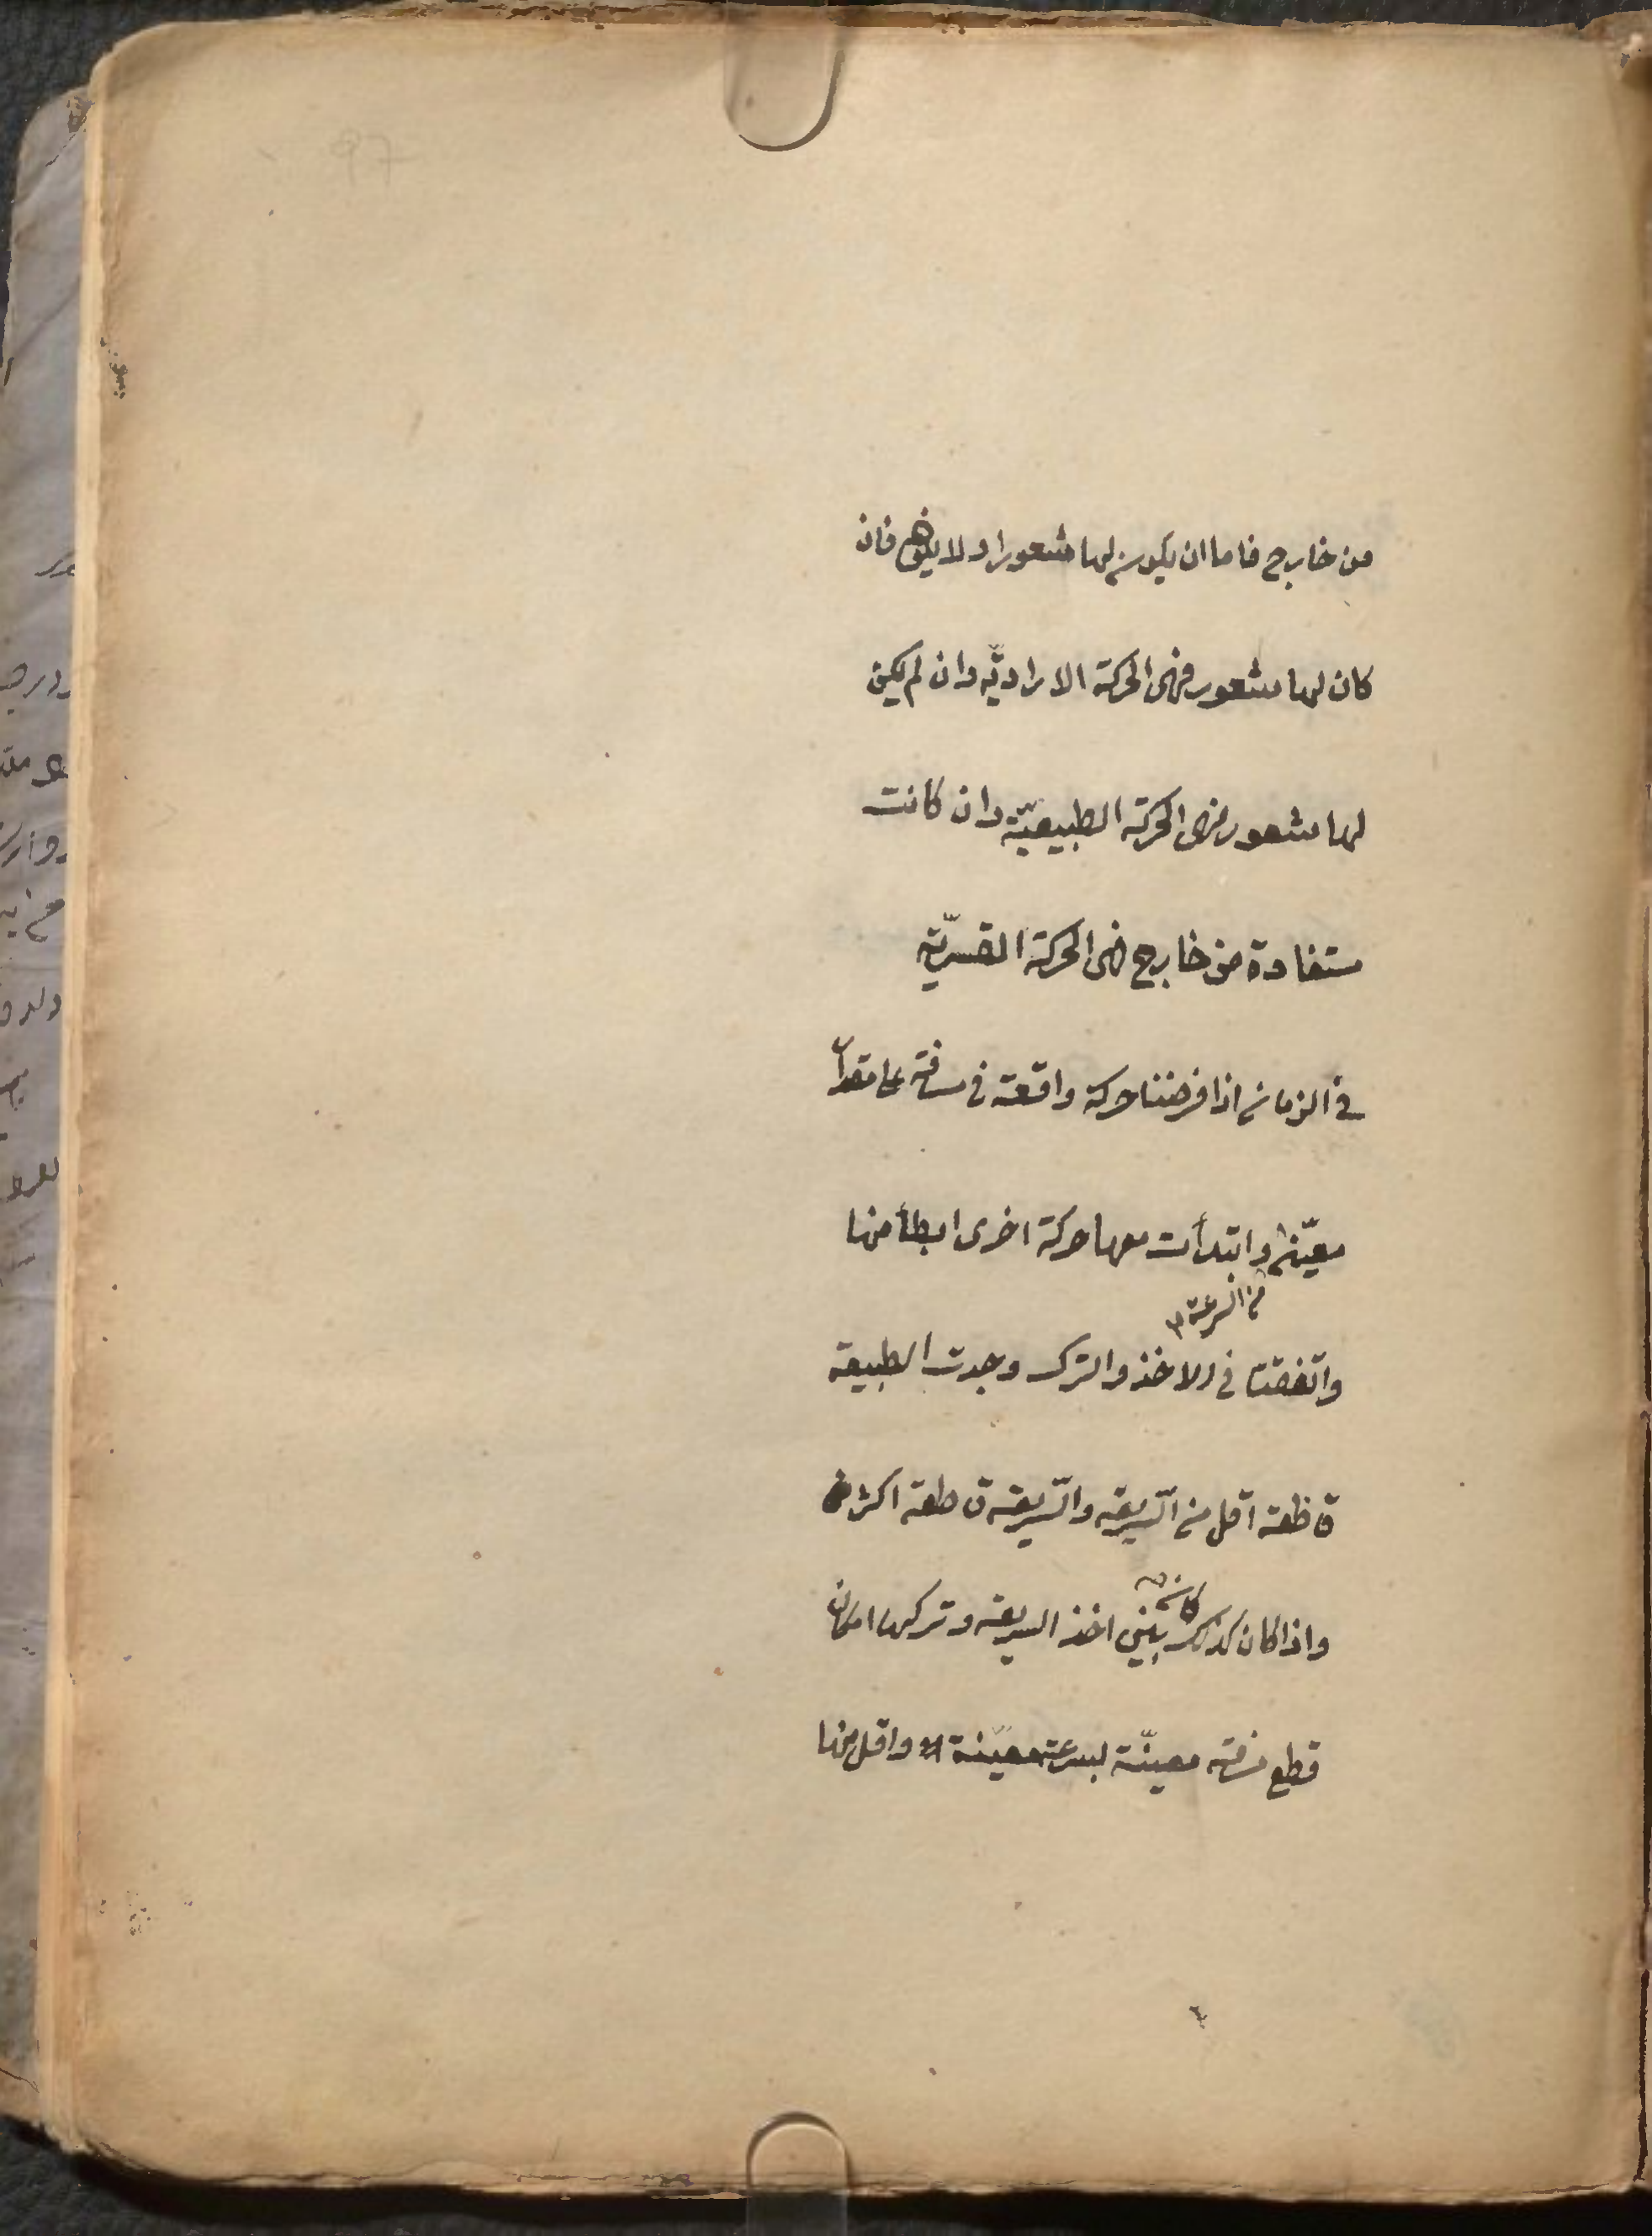 من خارج فاما ان يكون لها شعور او لا يكون فان
كان لها شعور فهى الحركة الاراديّة وان لم يكن
لها شعور فهى الحركة الطبيعيّة وان كانت
مستفادة من خارج فهى الحركة القسريّة
فى الزمان اذا فرضنا حركة واقعة فى مسافة على مقدار
معيّن وابتدأت معها حركة اخرى ابطأ منها
من السرعة
واتفقتا فى الاخذ والترك وجدت البطيئة
قاطعة اقل من السّريعة والسّريعة قاطعة اكثر
كان
واذا كان كذلك بين اخذ السريعة وتركها امكان
قطع مسافة معيّنة بسرعة معيّنة واقل منها